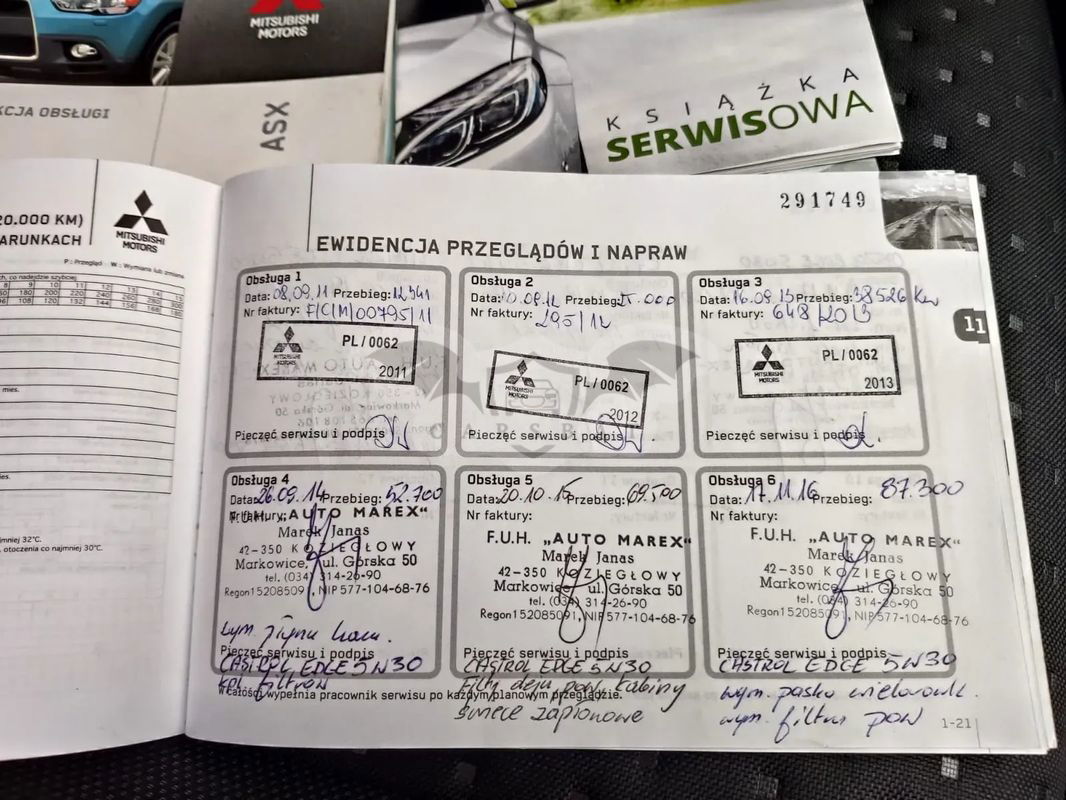 MITSUBISHI
MOTORS
KCJA OBSŁUGI
ASX
KSIĄŻKA
SERWISOWA
20.000 KM)
ARUNKACH
MITSUBISHI
MOTORS
P : Przegląd W : Wymiana lub zmiana
ch, co nadejdzie szybciej
8 9 10 11 12 13 14 15
180 200 220 240 260 280 300
96 108 120 132 144 156 168 180
mies.
mniej 32°C.
otoczenia co najmniej 30°C.
291749
EWIDENCJA PRZEGLĄDÓW I NAPRAW
11
Obsługa 1
Data: 08.09.11 Przebieg: 12341
Nr faktury: F/C/M/00795/11
MITSUBISHI
MOTORS
PL/0062
2011
Pieczęć serwisu i podpis
Obsługa 2
Data: 10.09.12 Przebieg:
Nr faktury: 295/12
MITSUBISHI
MOTORS
PL/0062
2012
Pieczęć serwisu i podpis
Obsługa 3
Data: 16.09.13 Przebieg: 38526 Km
Nr faktury: 648/2013
MITSUBISHI
MOTORS
PL/0062
2013
Pieczęć serwisu i podpis
CARSBAT
Obsługa 4
Data: 26.09.14 Przebieg: 52.700
Nr faktury:
F.U.H. „AUTO MAREX"
Marek Janas
42-350 KOZIEGŁOWY
Markowice, ul. Górska 50
tel. (034) 314-26-90
Regon 15208509, NIP 577-104-68-76
wym. płynu ham.
Pieczęć serwisu i podpis
CASTROL EDGE 5W30
kpl. filtrów
Obsługa 5
Data: 20.10.15 Przebieg: 69.500
Nr faktury:
F.U.H. „AUTO MAREX"
Marek Janas
42-350 KOZIEGŁOWY
Markowice, ul. Górska 50
tel. (034) 314-26-90
Regon 152085091, NIP 577-104-68-76
Pieczęć serwisu i podpis
CASTROL EDGE 5W30
kabiny
świece zapłonowe
Obsługa 6
Data: 17.11.16 Przebieg: 87.300
Nr faktury:
F.U.H. „AUTO MAREX"
Marek Janas
42-350 KOZIEGŁOWY
Markowice, ul. Górska 50
tel. (034) 314-26-90
Regon 152085091, NIP 577-104-68-76
Pieczęć serwisu i podpis
CASTROL EDGE 5W30
wym. paska wielorowk.
wym. filtru pow
W całości wypełnia pracownik serwisu po każdym planowym przeglądzie.
1-21